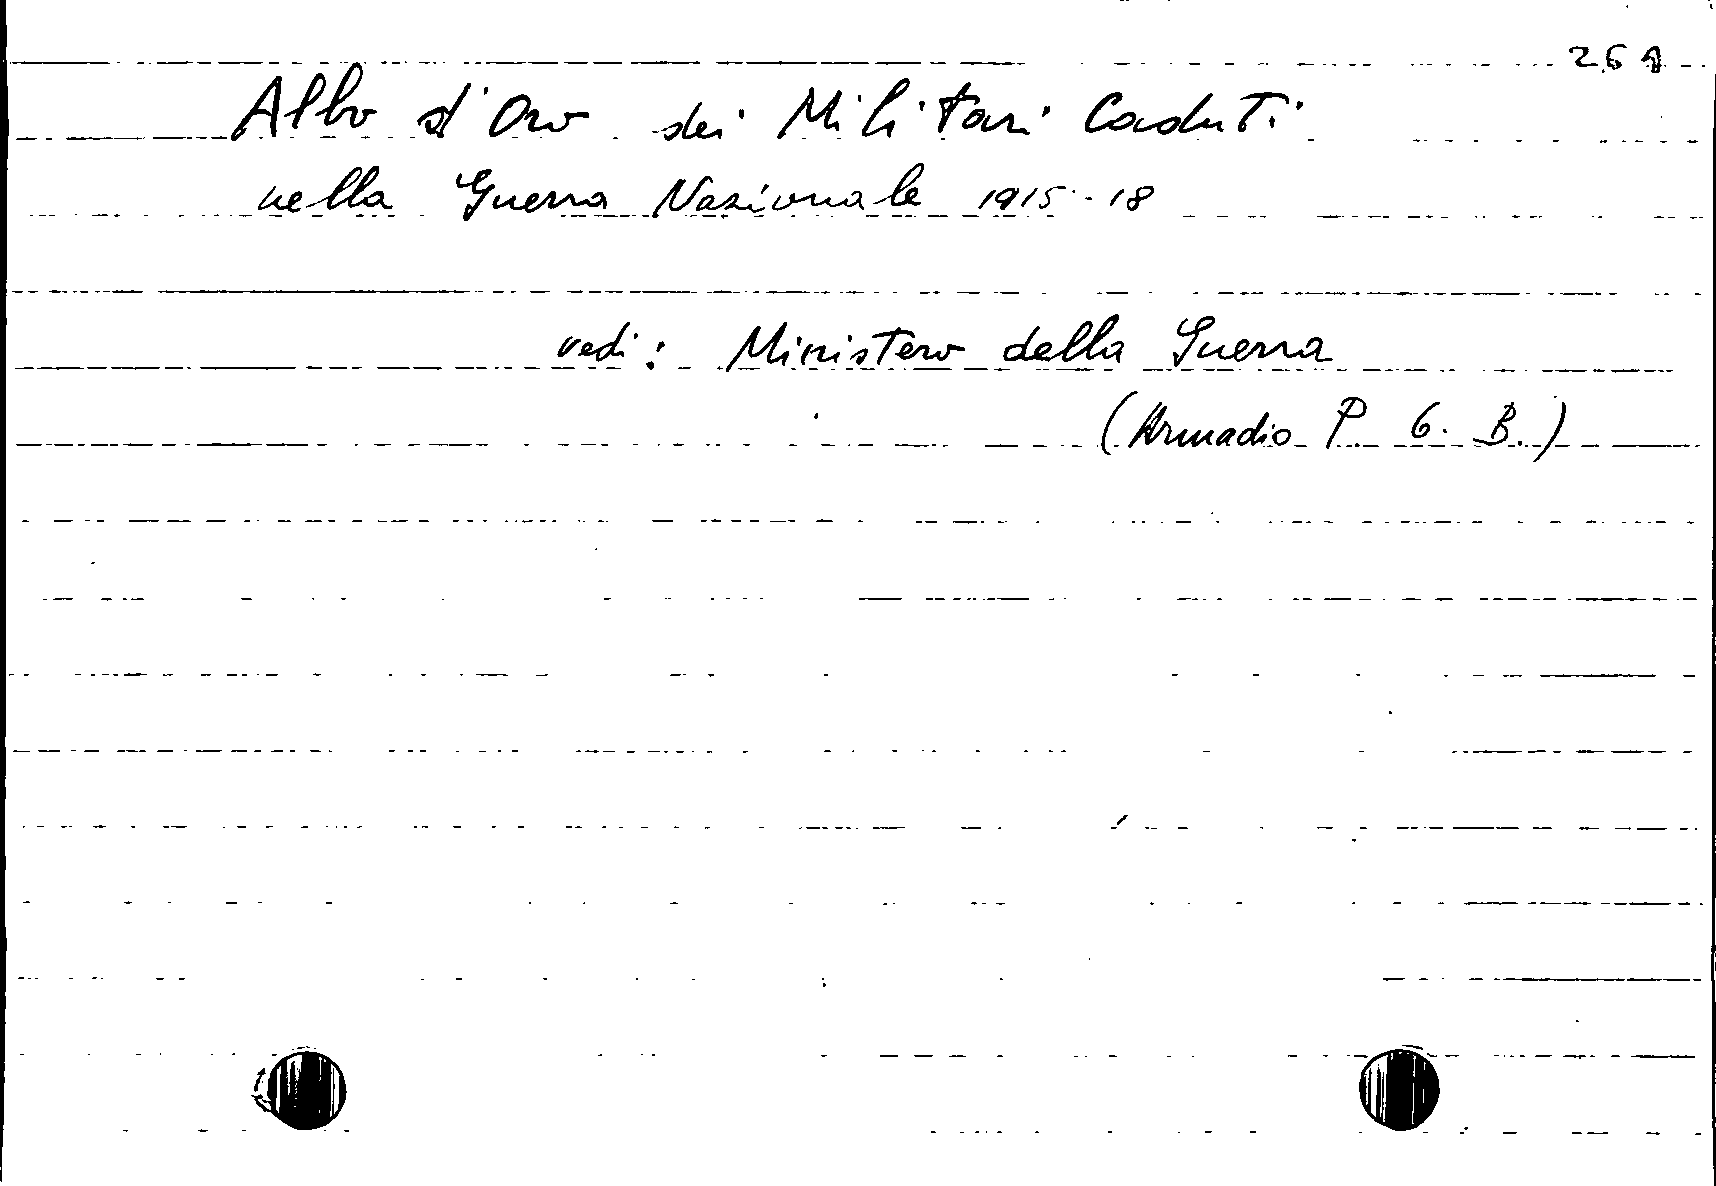 261
Albo d'Oro dei Militari Caduti
nella Guerra Nazionale 1915-18
vedi: Ministero della Guerra
(Armadio P. 6. B.)